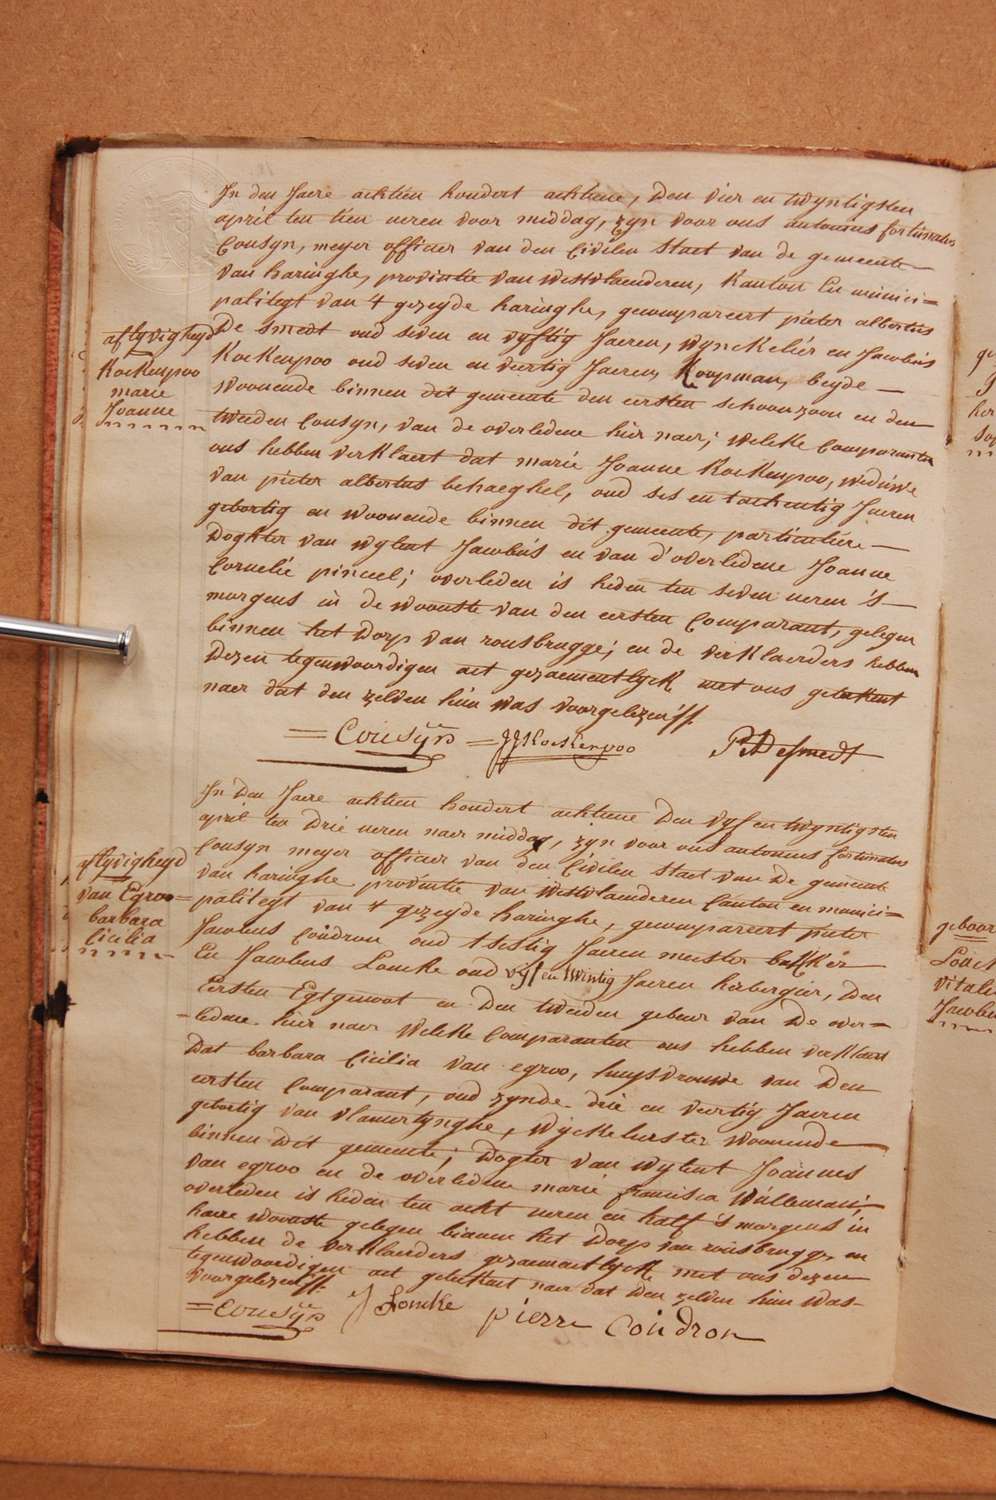 In den Jaere achtien hondert achtiene, Den vier en twyntigsten
april ten tien ueren voor middag, zyn voor ons antonius fortunatus
Cousyn, meyer officier van den Civilen Staet van de gemeente
van haringhe, provintie van westvlaenderen, Kanton En munici=
paliteyt van 4 gezeyde haringhe, gecompareert pieter albertus
De smedt oud seven en vyftig Jaeren, wynckeliér en Jacobus
Kockenpoo oud seven en veertig Jaeren, Koopman, beyde
woonende binnen dit gemeente den eersten schoonzoon en den
tweeden Cousyn, van de overledene hier naer; welcke comparanten
ons hebben verklaert dat marie Joanne Kockenpoo, weduwe
van pieter albertus behaeghel, oud ses en tachentig Jaeren
gebortig en woonende binnen dit gemeente, particuliére
Doghter van wylent Jacobus en van d'overledene Joanne
Cornelie pinceel; overleden is heden ten seven ueren 's
morgens in de woonste van den eersten Comparant, gelegen
binnen het Dorp van rousbrugge; en de verklaerders hebben
Dezen tegenwoordigen act gezaementlyck met ons geteekent
naer dat den zelven hun was voorgelezen
Cousyn
JJKockenpoo
P:A Desmedt
aflyvigheyd
Kockenpoo
marie
Joanne
In Den Jaere achtien hondert achtiene Den vyf en twyntigsten
april ten Drie ueren naer middag, zyn voor ons antonius fortunatus
Cousyn meyer officier van den Civilen Staet van De gemeente
van haringhe provintie van westvlaenderen Canton en munici=
paliteyt van 4 gezeyde haringhe, gecompareert pieter
Jacobus Coudron oud tsestig Jaeren meester bakker
En Jacobus Loncke oud vyf en twintig Jaeren herbergier, Den
Eersten Egtgenoot en Den tweeden gebeur van De over=
=ledene hier naer welcke Comparanten ons hebben verklaert
Dat barbara Cicilia van egroo, huysvrouwe van Den
eersten Comparant, oud zynde drie en veertig Jaeren
gebortig van vlamertynghe, woonende
binnen dit gemeente; Dogter van wylent Joannes
van egroo en de overledene marie francisca Willeman;
overleden is heden ten acht ueren en half 's morgens in
haere woonste gelegen binnen het Dorp van rousbrugge, en
hebben de verklaerders gezaementlyck met ons dezen
tegenwoordigen act geteekent naer dat den zelven hun was
voorgelezen
Cousyn
J Loncke
pierre Coudron
aflyvigheyd
van Egroo=
barbara
Cicilia
geboor
Vitale
Jacobus